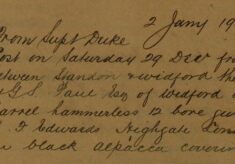 2 Jany 19
From Supt Duke
Post on Saturday 29 Dec fr
between Standon & Widford th
G.S. Paul Esq of Widford
barrel hammerless 12 bore gun
Edwards Highgate Lon
black alpacca coverin